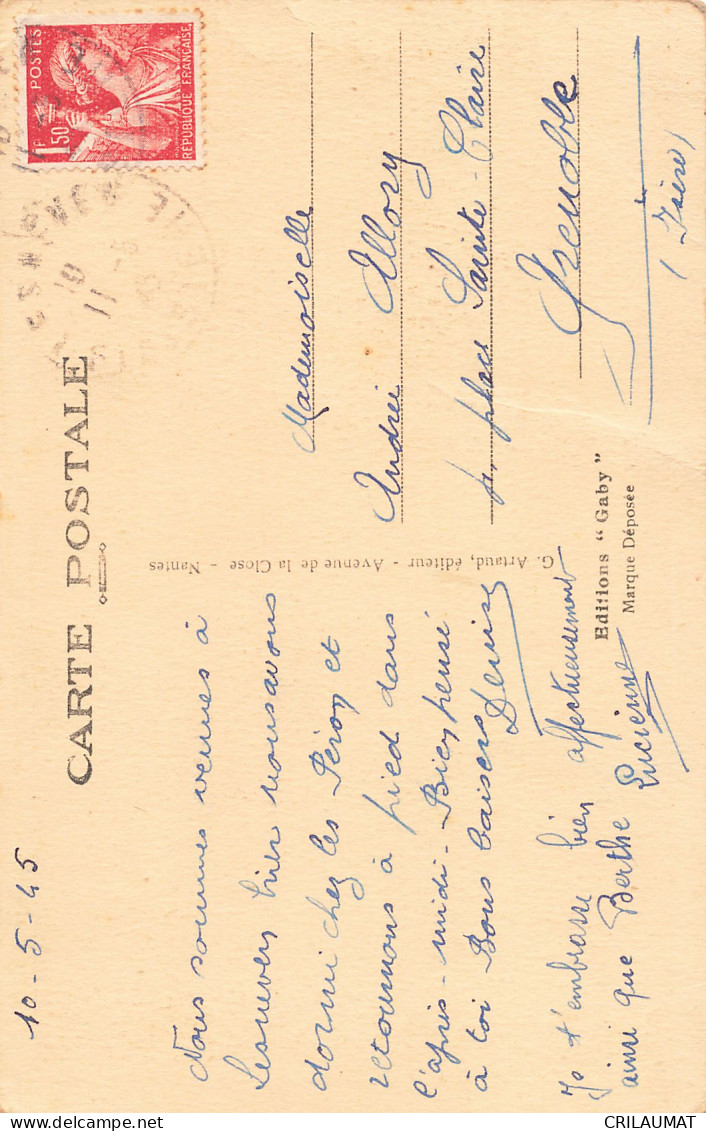 CARTE POSTALE
10-5-45
Nous sommes venues à
Lesneven hier nous avons
dormi chez les Péron et
retournons à pied dans
l'après-midi - Bien pensé
à toi Bons baisers Denise
Je t'embrasse bien affectueusement
ainsi que Berthe Lucienne
G. Artaud, éditeur - Avenue de la Close - Nantes
POSTES
1F50
RÉPUBLIQUE FRANÇAISE
Mademoiselle
Andrée Allory
place Sainte-Claire
Grenoble
(Isère)
Editions "Gaby"
Marque Déposée
CRILAUMAT